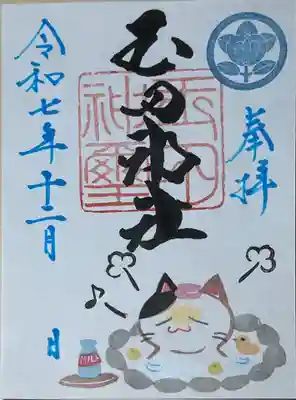 奉拝
玉田神社
令和七年十二月 日
MILK